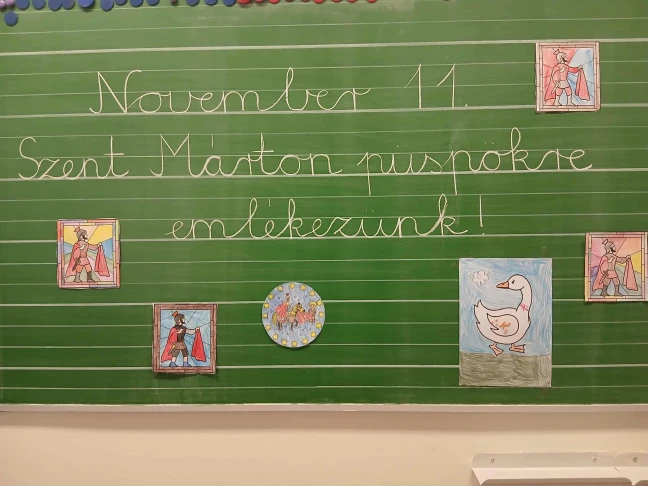 November 11.
Szent Márton püspökre
emlékezünk!